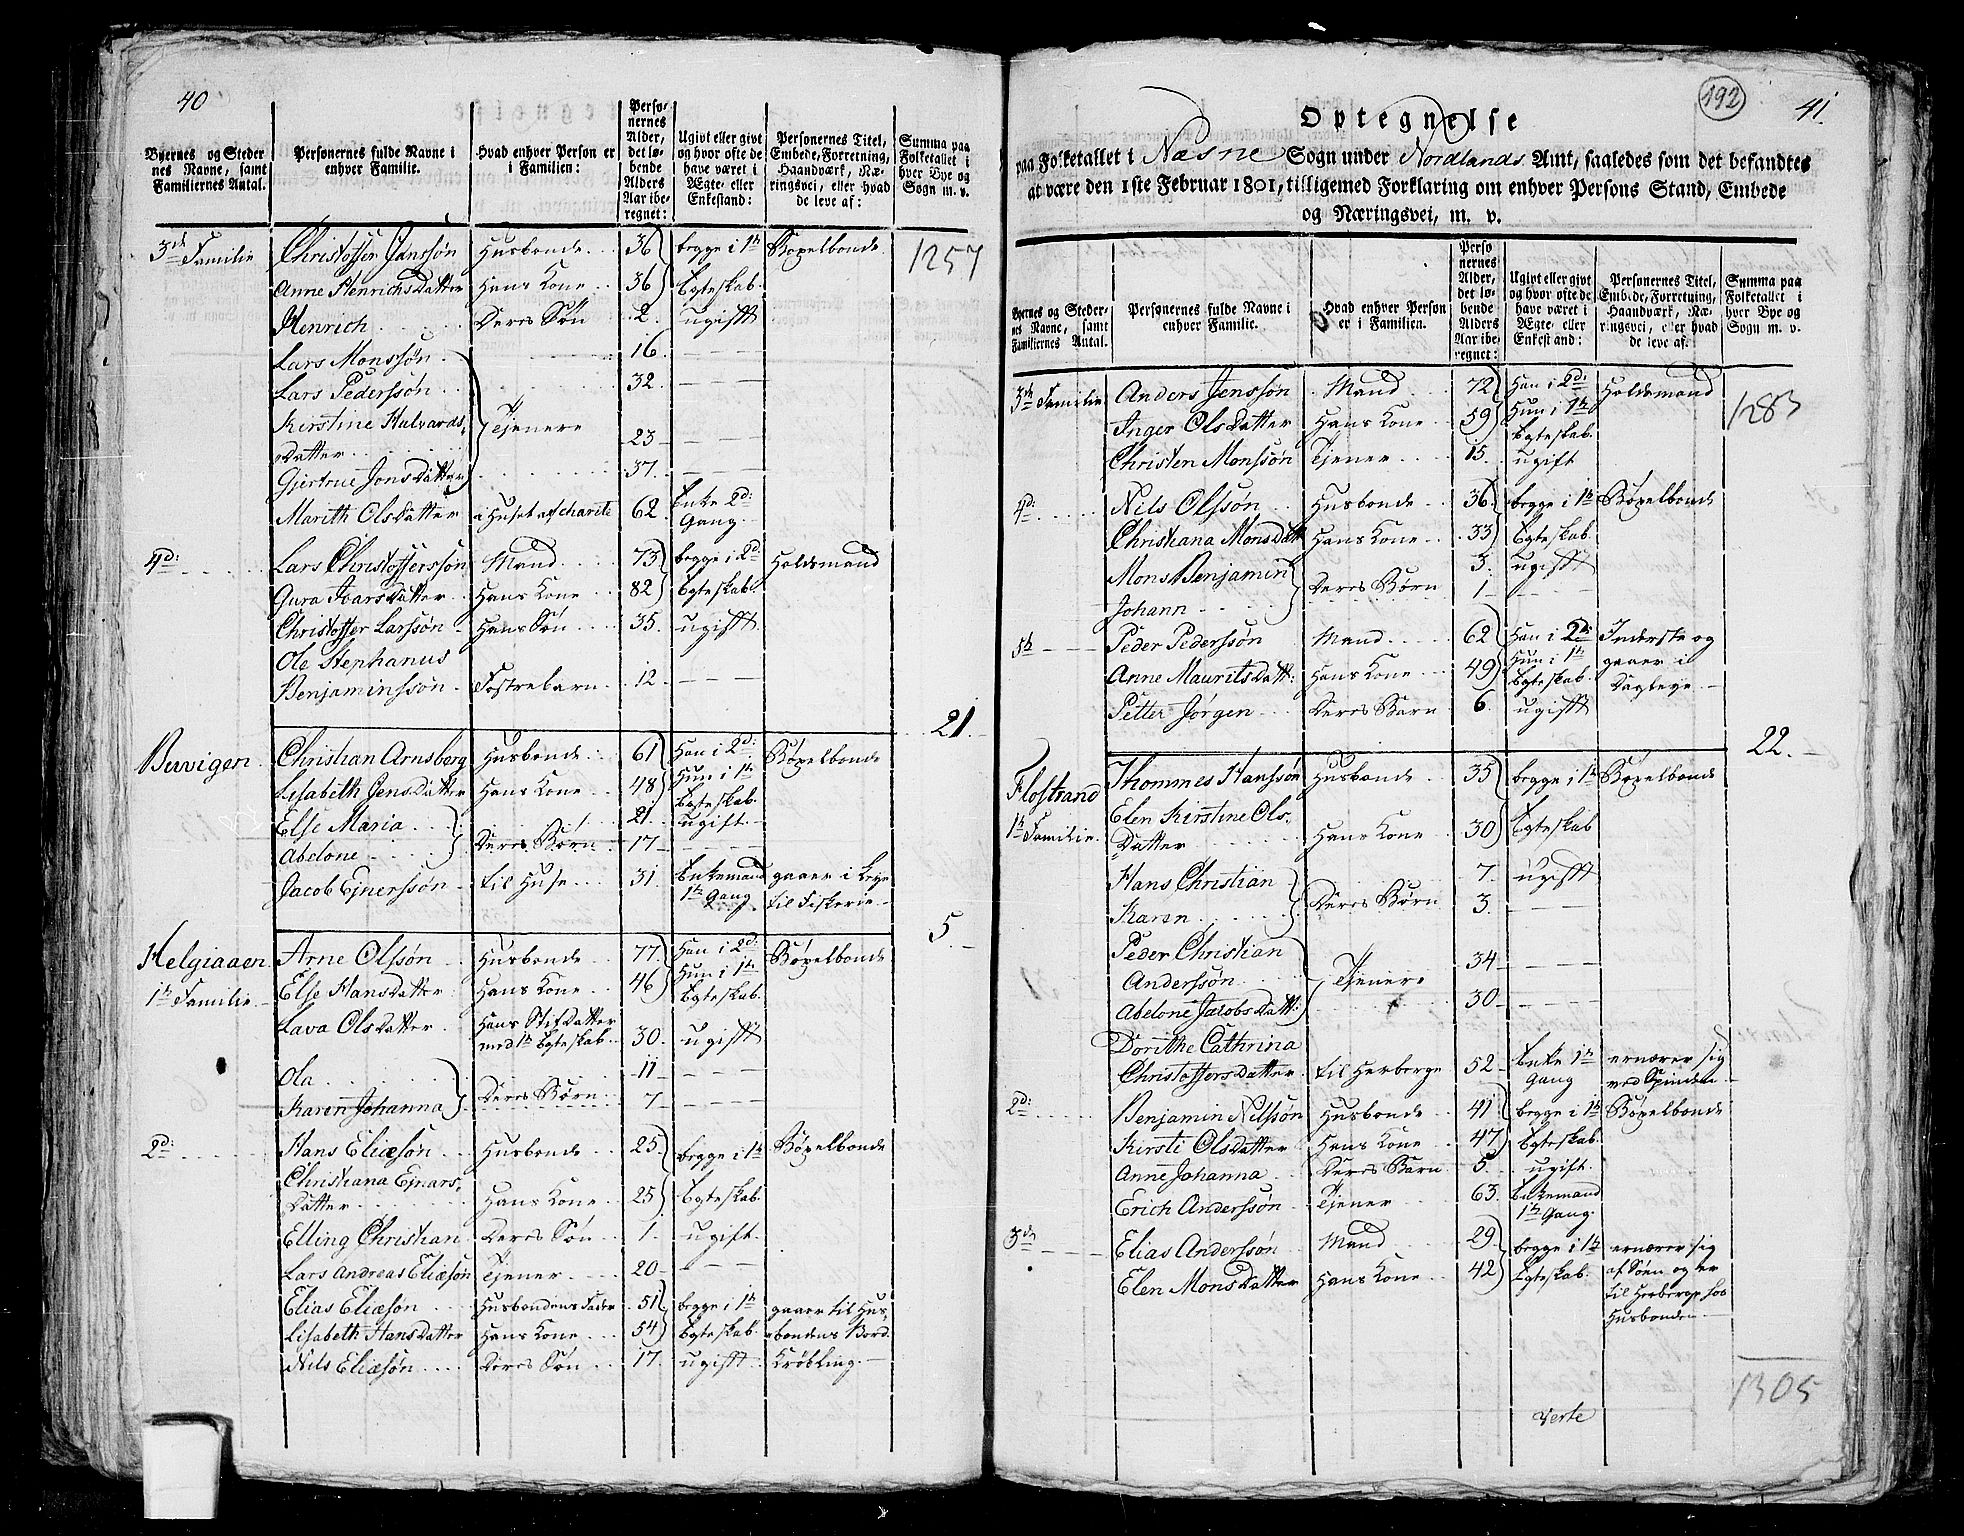 40
Byernes og Steder nes Navne, samt Familiernes Antal.
Personernes fulde Navne i enhver Familie.
Hvad enhver Person er i Familien:
Personernes Alder, det løbende Alders Aar iberegnet:
Ugivt eller givt og hvor ofte de have været i Ægte- eller Enkestand:
Personernes Titel, Embede, Forretning, Haandværk, Næringsvei, eller hvad de leve af:
Summa paa Folketallet i hver Bye og Sogn m. v.
3de Familie Christoffer Janssøn Husbonde 36 begge i 1te Bøxelbonde 1257
Anne Henrichsdatter Hans Kone 36 Egteskab.
Henrich Deres Søn 2. ugifft
Lars Monssøn 16
Lars Pederssøn 32
Kirstine Halvards- Tjenere
Datter 23
Gjertrue Jonsdatter 37
Marith Olsdatter i Huset af charite 62 Enke 2d:
Gang.
4d: Lars Christofferssøn Mand 73 begge i 2d: Holdsmand
Gura Ivarsdatter Hans Kone 82 Egteskab.
Christoffer Larssøn Hans Søn 35 ugifft
Ole Stephanus
Benjaminssøn Fostrebarn 12
21.
Buvigen Christian Arnsberg Husbonde 61 Han i 2d: Bøxelbonde
Lisabeth Jensdatter Hans Kone 48 Hun i 1te
Egteskab.
Else Maria 21 ugift
Abelone Deres Børn 17
Jacob Ejnerssøn til Huse 31 Enkemand gaaer i Leye
1te Gang til Fiskerie
5.
Helgiaaen Arne Olssøn Husbonde 77 Han i 2d: Bøxelbonde
1te Familie Else Hansdatter Hans Kone 46 Hun i 1te
Egteskab.
Lava Olsdatter Hans Stifdatter
med 1te Egteskab 30 ugifft
Ola 11
Karen Johanna Deres Børn 7
2d: Hans Eliæsøn Husbonde 25 begge i 1te Bøxelbonde
Christiana Ejnars-
Datter Hans Kone 25 Egteskab.
Elling Christian Deres Søn 1. ugift
Lars Andreas Eliæsøn Tjener 20
Elias Eliæsøn Husbondens Fader 51 begge i 1te gaaer til Hus-
Lisabeth Hansdatter Hans Kone 54 Egteskab. bondens Bord.
Nils Eliæsøn Deres Søn 17. ugifft Krøbling.
192
41.
Optegnelse
paa Folketallet i Næsne Sogn under Nordlands Amt, saaledes som det befandtes
at være den 1ste Februar 1801, tilligemed Forklaring om enhver Persons Stand, Embede
og Næringsvei, m. v.
Byernes og Stedernes Navne, samt Familiernes Antal.
Personernes fulde Navne i enhver Familie.
Hvad enhver Person er i Familien.
Personernes Alder, det løbende Alders Aar iberegnet:
Ugivt eller givt og hvor ofte de have været i Ægte- eller Enkestand:
Personernes Titel, Embede, Forretning, Haandværk, Næringsvei, eller hvad de leve af:
Summa paa Folketallet i hver Bye og Sogn m. v.
3de Familie Anders Jenssøn Mand 72 Han i 2d: Holdsmand 1283
Inger Olsdatter Hans Kone 59 Hun i 1te
Egteskab.
Christen Monssøn Tjener 15 ugift
4d: Nils Olssøn Husbonde 36 begge i 1te Bøxelbonde
Christiana Monsdatt: Hans Kone 33 Egteskab
Mons Benjamin 3. ugifft
Johann Deres Børn 1
5te Peder Pederssøn Mand 62 Han i 2d: Inderste og
Anne Mauritsdatt: Hans Kone 49 Hun i 1te gaaer i
Egteskab. Dagleye
Petter Jørgen Deres Barn 6 ugifft
22.
Flostrand Thommes Hanssøn Husbonde 35 begge i 1te Bøxelbonde
1te Familie Elen Kirstine Ols-
Datter Hans Kone 30 Egteskab
Hans Christian 7 ugifft
Karen Deres Børn 3.
Peder Christian
Anderssøn Tjenere 34
Abelone Jacobsdatt: 30
Dorithe Cathrina
Christoffersdatter til Herberge 52 Enke 1te ernærer sig
Gang ved Spinden
2d: Benjamin Nilssøn Husbonde 41 begge i 1te Bøxelbonde
Kirsti Olsdatter Hans Kone 47 Egteskab.
Anne Johanna Deres Barn 5 ugift.
Erich Anderssøn Tjener 63. Enkemand
1te Gang.
3de Elias Anderssøn Mand 29 begge i 1te ernærer sig
Elen Monsdatter Hans Kone 42 Egteskab. af Søen og er
til Herberge hos
Husbonden
1305
Verte